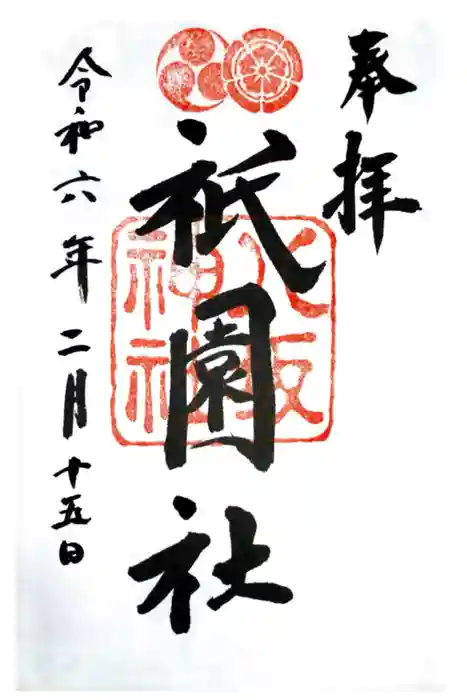 奉拝
祇園社
八坂
神社
令和六年二月十五日